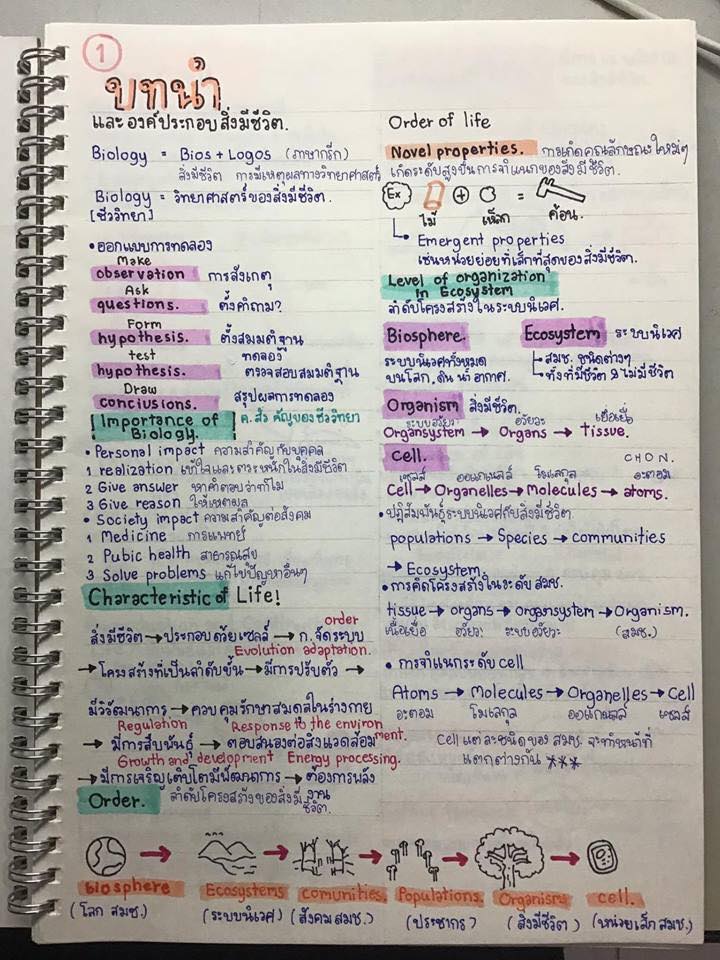 1
บทนำ
และองค์ประกอบสิ่งมีชีวิต.
Biology = Bios + Logos (ภาษากรีก)
สิ่งมีชีวิต การมีเหตุผลทางวิทยาศาสตร์
Biology = วิทยาศาสตร์ของสิ่งมีชีวิต.
[ชีววิทยา]
•ออกแบบการทดลอง
Make
observation การสังเกตุ
Ask
questions. ตั้งคำถาม?
Form
hypothesis. ตั้งสมมติฐาน
test ทดลอง
hypothesis. ตรวจสอบสมมติฐาน
Draw
conclusions. สรุปผลการทดลอง
Importance of ค.สำคัญของชีววิทยา
Biology.
• Personal impact ความสำคัญกับบุคคล
1 realization เข้าใจและตระหนักในสิ่งมีชีวิต
2 Give answer หาคำตอบว่าทำไม
3 Give reason ให้เหตุผล
• Society impact ความสำคัญต่อสังคม
1 Medicine การแพทย์
2 Pubic health สาธารณสุข
3 Solve problems แก้ไขปัญหาอื่นๆ
Characteristic of Life!
order
สิ่งมีชีวิต → ประกอบด้วยเซลล์ → ก.จัดระบบ
Evolution adaptation.
→ โครงสร้างที่เป็นลำดับขั้น → มีการปรับตัว →
มีวิวัฒนาการ → ควบคุมรักษาสมดุลในร่างกาย
Regulation Response to the environment.
→ มีการสืบพันธุ์ → ตอบสนองต่อสิ่งแวดล้อม
Growth and development Energy processing.
→ มีการเจริญเติบโตมีพัฒนาการ → ต้องการพลังงาน
Order. ลำดับโครงสร้างของสิ่งมีชีวิต.
Order of life
Novel properties. การเกิดคุณลักษณะใหม่ๆ
เกิดระดับสูงขึ้นการจำแนกของสิ่งมีชีวิต.
Ex + =
ไม้ เหล็ก ค้อน.
Emergent properties
เช่นหน่วยย่อยที่เล็กที่สุดของสิ่งมีชีวิต.
Level of organization
in Ecosystem
ลำดับโครงสร้างในระบบนิเวศ.
Biosphere. Ecosystem ระบบนิเวศ
ระบบนิเวศทั้งหมด สมช. ชนิดต่างๆ
บนโลก, ดิน น้ำ อากาศ. ทั้งที่มีชีวิต & ไม่มีชีวิต
Organism สิ่งมีชีวิต.
ระบบอวัยวะ อวัยวะ เนื้อเยื่อ
Organsystem → Organs → Tissue.
Cell. CHON.
เซลล์ ออแกเนลล์ โมเลกุล อะตอม
Cell → Organelles → Molecules → atoms.
• ปฏิสัมพันธ์ระบบนิเวศกับสิ่งมีชีวิต
populations → Species → communities
→ Ecosystem.
• การคิดโครงสร้างในระดับ สมช.
tissue → organs → organsystem → Organism.
เนื้อเยื่อ อวัยวะ ระบบอวัยวะ (สมช.)
• การจำแนกระดับ cell
Atoms → Molecules → Organelles → Cell
อะตอม โมเลกุล ออแกเนลล์ เซลล์
Cell แต่ละชนิดของ สมช. จะทำหน้าที่
แตกต่างกัน ***
biosphere → Ecosystems → comunities → Populations. → Organisms → cell.
(โลก สมช.) (ระบบนิเวศ) (สังคม สมช.) (ประชากร) (สิ่งมีชีวิต) (หน่วยเล็ก สมช.)